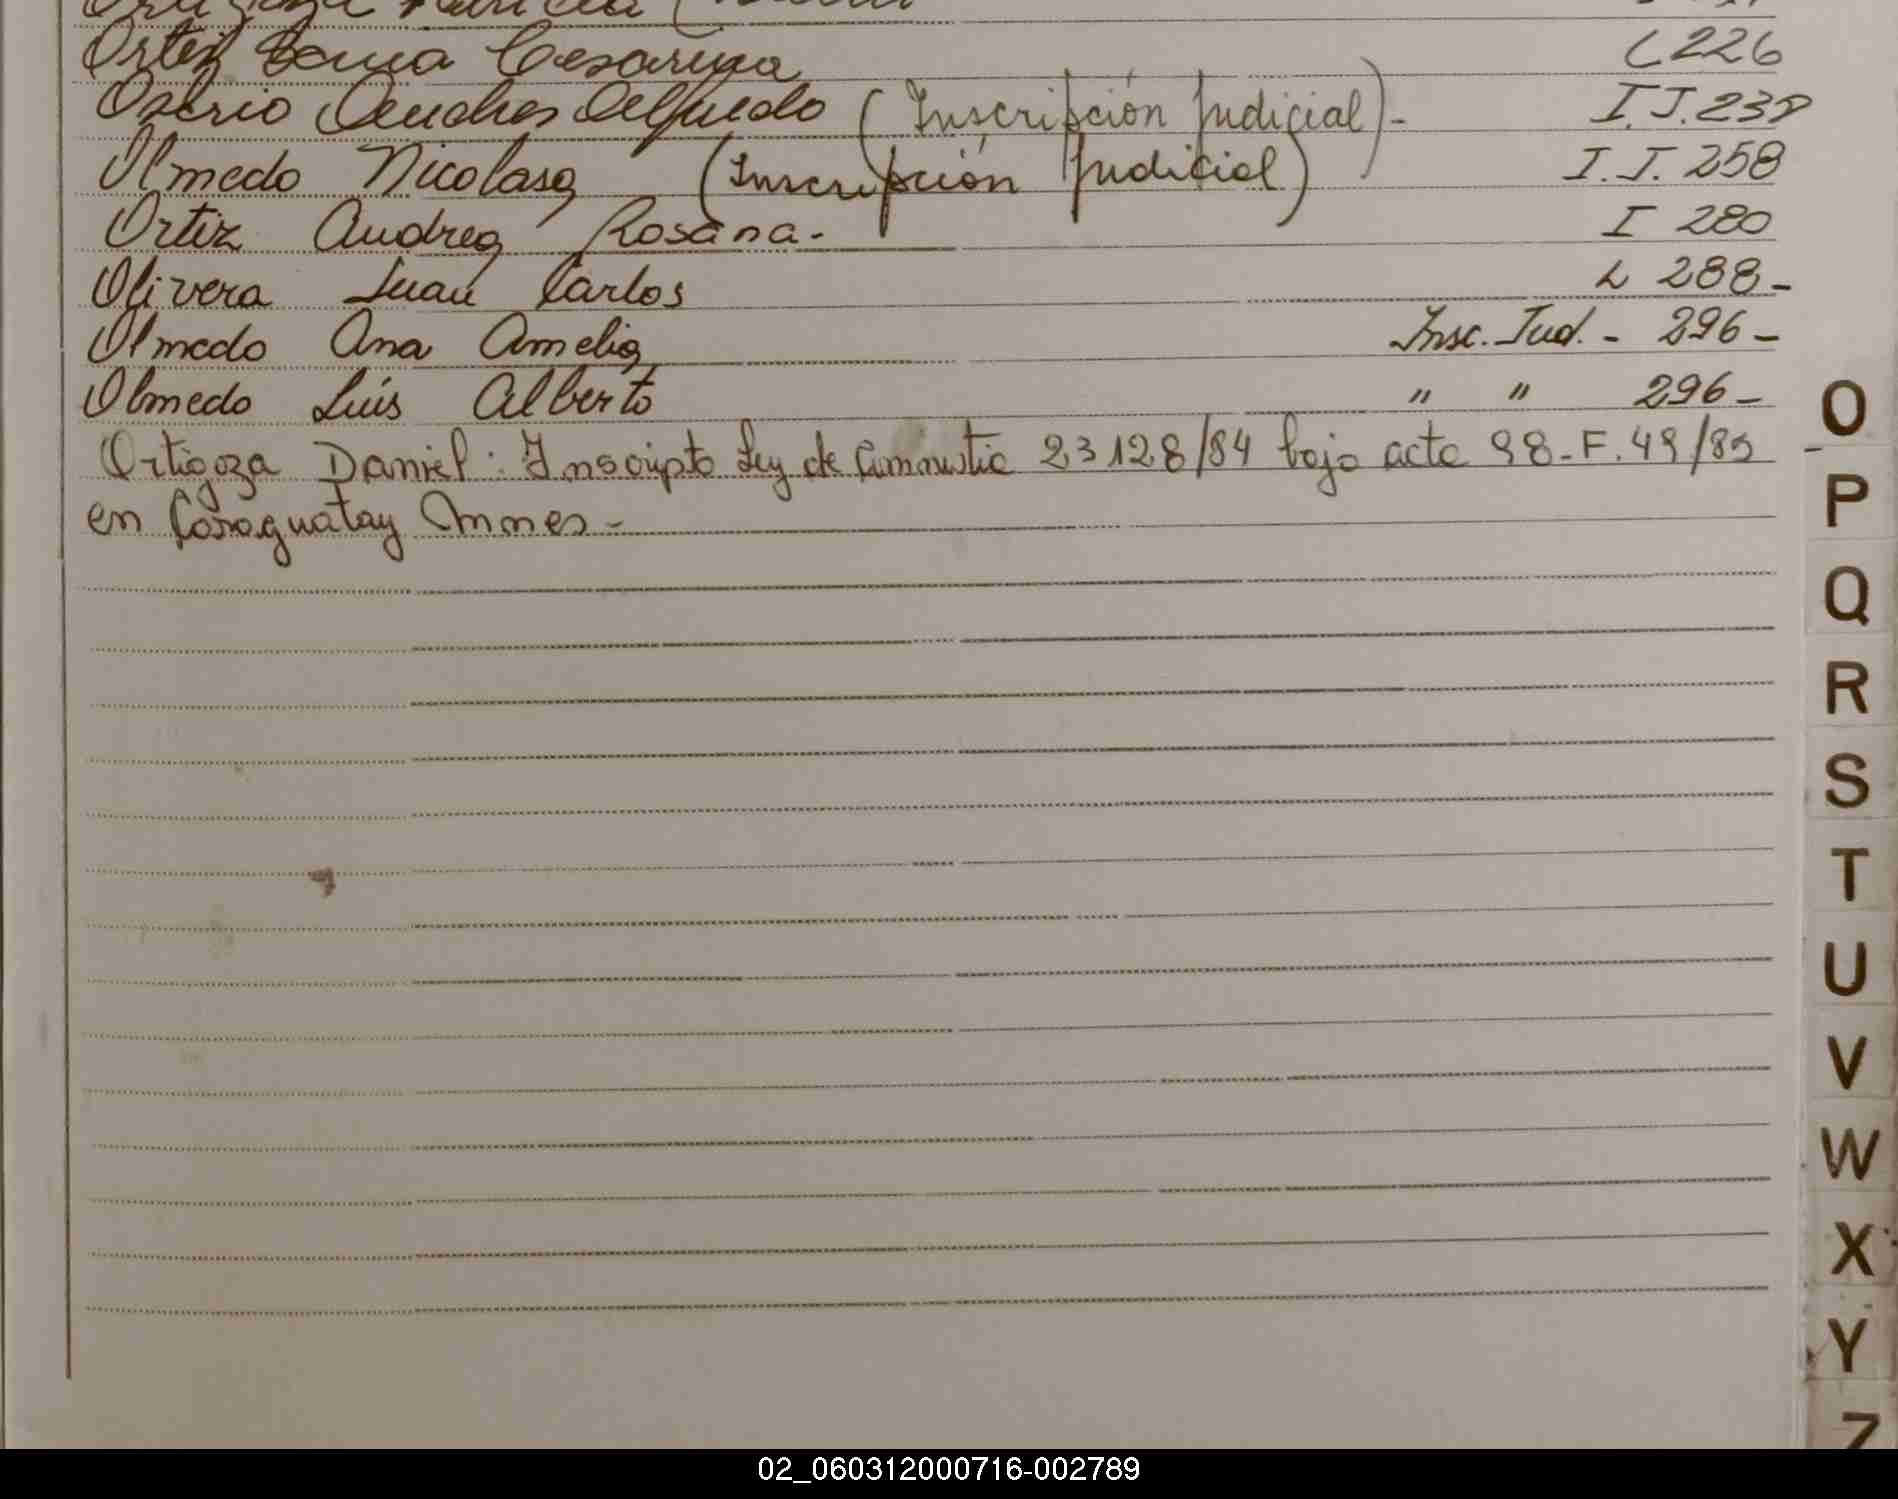 Ortiz Cesarina C 226
Osorio Andres Alfredo (Inscripción Judicial)- I.J. 239
Olmedo Nicolasa (Inscripción Judicial) I.J. 258
Ortiz Andrea Rosana- I 280
Olivera Juan Carlos L 288-
Olmedo Ana Amelia Insc. Jud. - 296-
Olmedo Luis Alberto " " 296-
Ortigoza Daniel: Inscripto Ley de Amnistia 23128/84 bajo acta 98-F.49/85
en Caraguatay Mnes-
O
P
Q
R
S
T
U
V
W
X
Y
Z
02_060312000716-002789